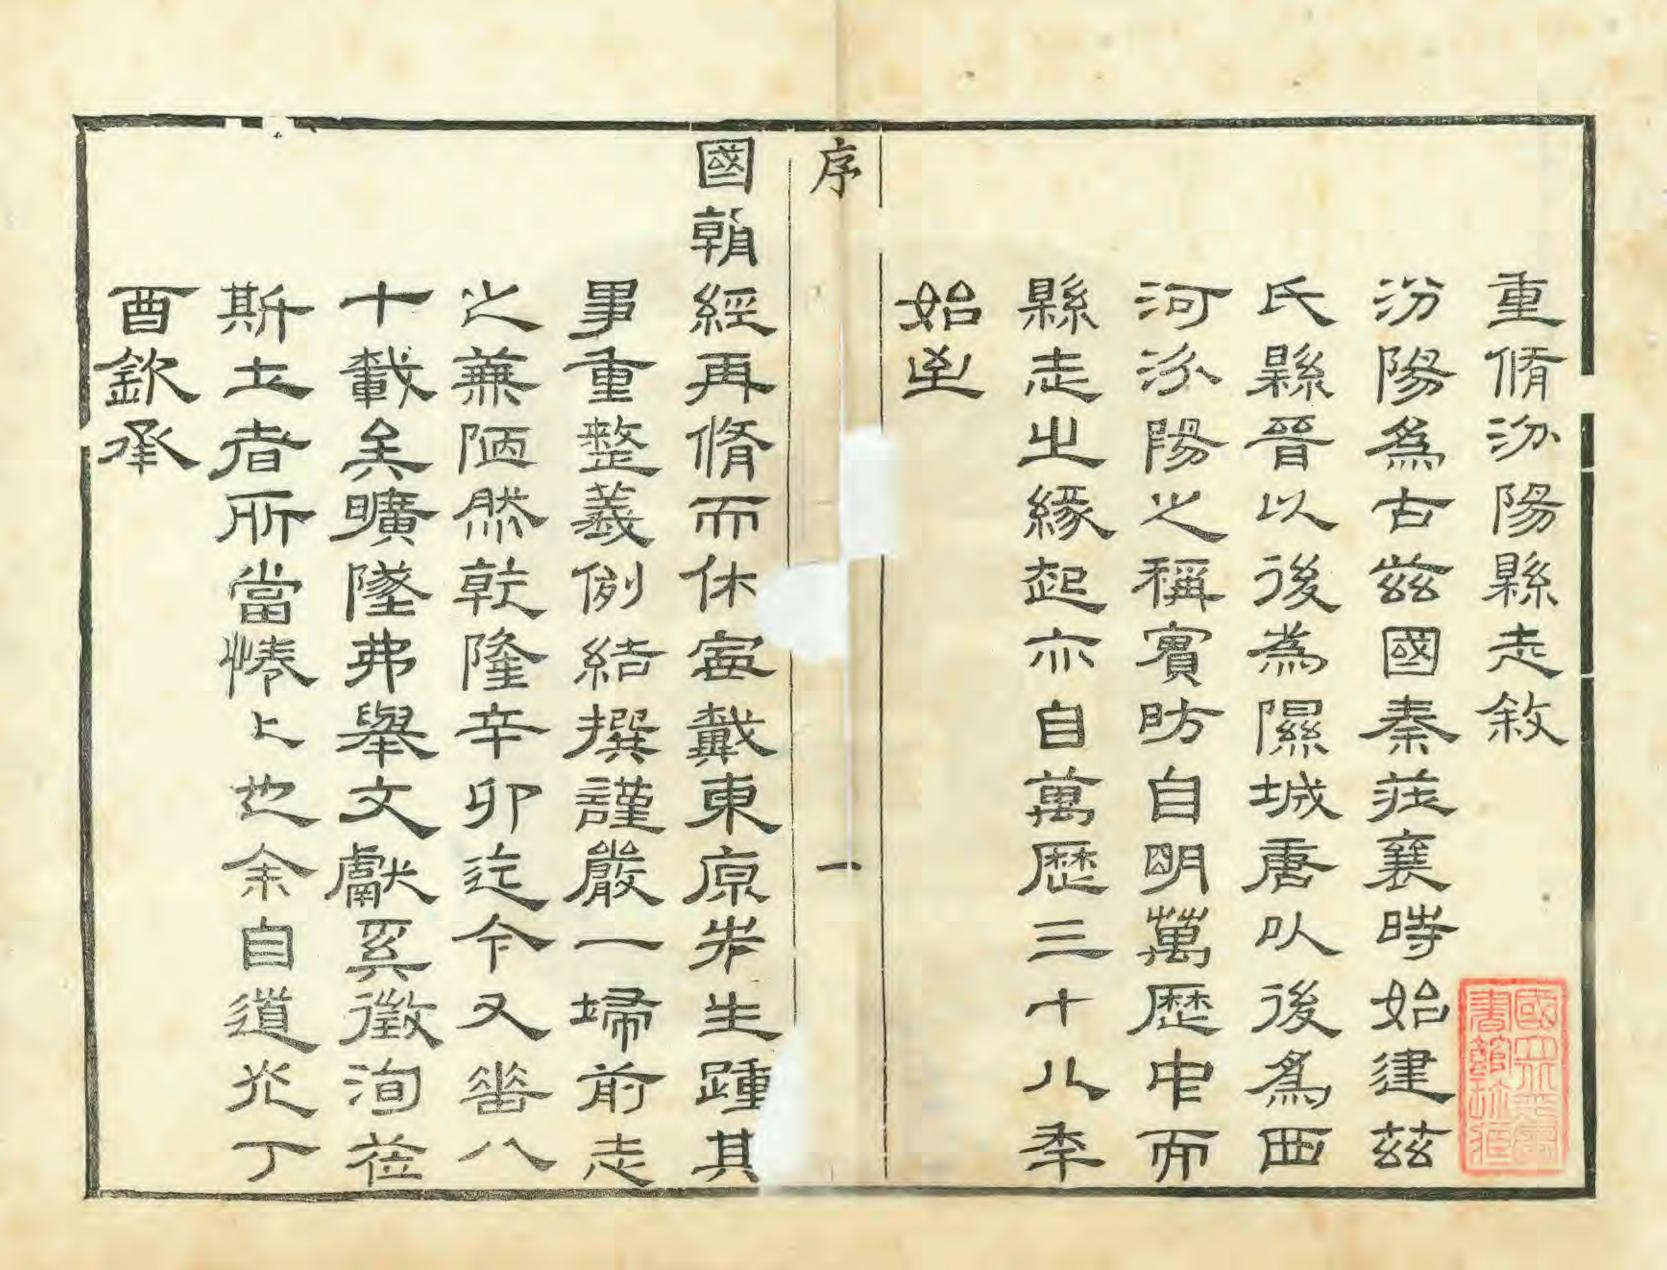 重脩汾陽縣志敘
汾陽爲古茲國秦莊襄時始建茲
氏縣晉以後為隰城唐以後爲西
河汾陽之稱實昉自明萬歷中而
縣志之緣起亦自萬歷三十八秊
始至
序
一
國朝經再脩而休寧戴東原先生踵其
事重整義例結撰謹嚴一埽前志
之兼陋然乾隆辛卯迄今又八
十載矣曠墜弗舉文獻奚徵洵莅
斯土者所當惓〻也余自道光丁
酉欽承